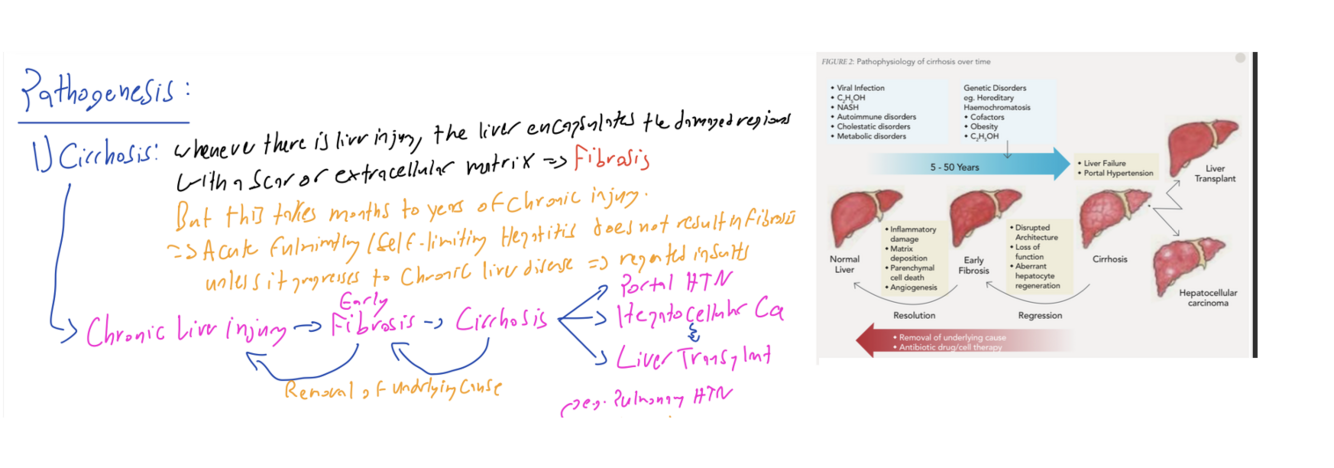 Pathogenesis:
1) Cirrhosis: whenever there is liver injury, the liver encapsulates the damaged regions
with a scar or extracellular matrix => Fibrosis
But this takes months to years of chronic injury.
=> Acute fulminating / self-limiting Hepatitis does not result in fibrosis
unless it progresses to chronic liver disease => repeated insults
Chronic Liver injury → Early Fibrosis → Cirrhosis
Portal HTN
Hepatocellular Ca
&
Liver Transplant
Removal of underlying Cause
e.g. Pulmonary HTN
FIGURE 2: Pathophysiology of cirrhosis over time
• Viral Infection
• C₂H₅OH
• NASH
• Autoimmune disorders
• Cholestatic disorders
• Metabolic disorders
Genetic Disorders
eg. Hereditary
Haemochromatosis
• Cofactors
• Obesity
• C₂H₅OH
5 - 50 Years
• Liver Failure
• Portal Hypertension
Liver
Transplant
Normal
Liver
• Inflammatory
damage
• Matrix
deposition
• Parenchymal
cell death
• Angiogenesis
Early
Fibrosis
• Disrupted
Architecture
• Loss of
function
• Aberrant
hepatocyte
regeneration
Cirrhosis
Hepatocellular
carcinoma
Resolution
Regression
• Removal of underlying cause
• Antibiotic drug/cell therapy